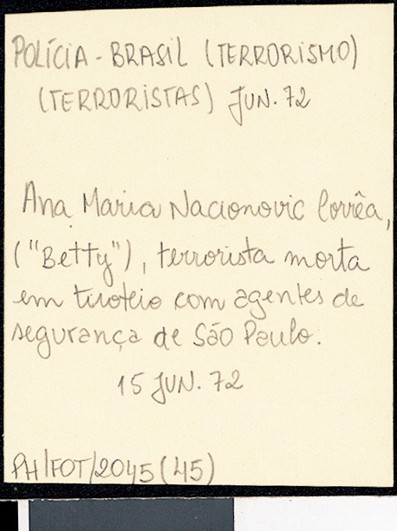 POLÍCIA - BRASIL (TERRORISMO)
(TERRORISTAS) JUN. 72
Ana Maria Nacionovic Corrêa,
("Betty"), terrorista morta
em tiroteio com agentes de
segurança de São Paulo.
15 JUN. 72
PH/FOT/2045(45)